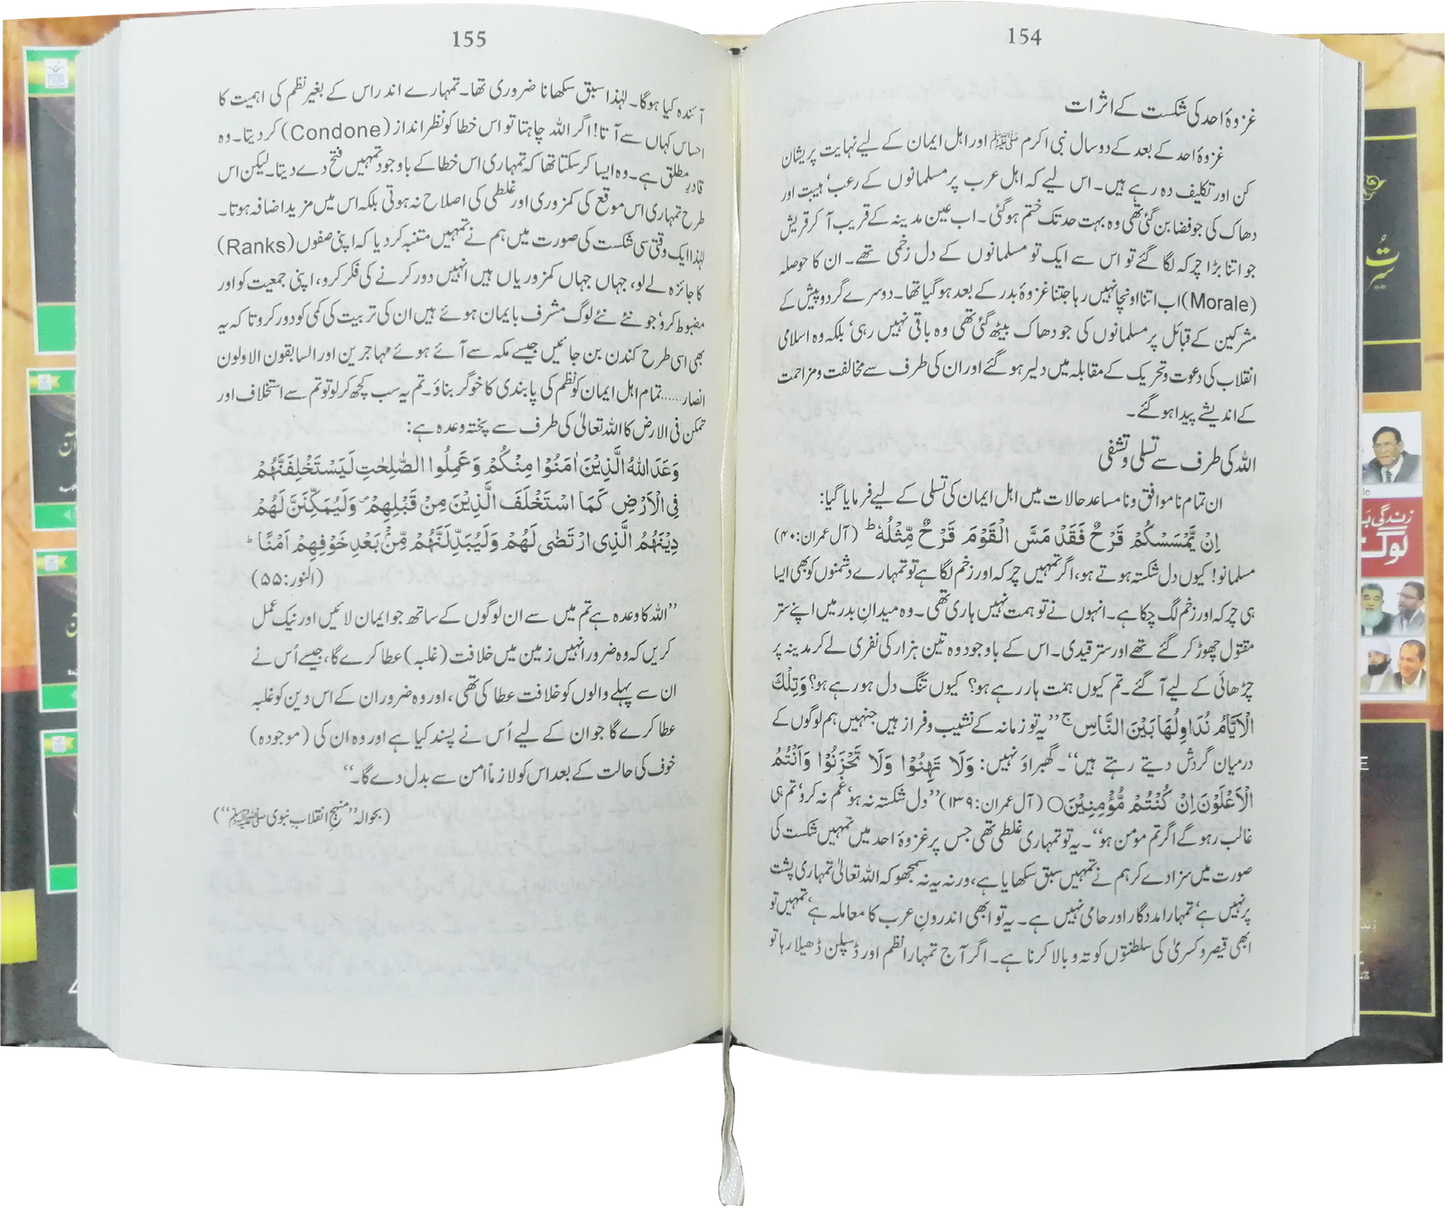 154
غزوۂ احد کی شکست کے اثرات
غزوۂ احد کے بعد کے دو سال نبی اکرم ﷺ اور اہل ایمان کے لیے نہایت پریشان
کن اور تکلیف دہ رہے ہیں۔ اس لیے کہ اہل عرب پر مسلمانوں کے رعب، ہیبت اور
دھاک کی جو فضا بن گئی تھی وہ بہت حد تک ختم ہو گئی۔ اب عین مدینہ کے قریب آ کر قریش
جو اتنا بڑا چرکہ لگا گئے تو اس سے ایک تو مسلمانوں کے دل زخمی تھے۔ ان کا حوصلہ
(Morale) اب اتنا اونچا نہیں رہا جتنا غزوۂ بدر کے بعد ہو گیا تھا۔ دوسرے گرد و پیش کے
مشرکین کے قبائل پر مسلمانوں کی جو دھاک بیٹھ گئی تھی وہ باقی نہیں رہی، بلکہ وہ اسلامی
انقلاب کی دعوت و تحریک کے مقابلہ میں دلیر ہو گئے اور ان کی طرف سے مخالفت و مزاحمت
کے اندیشے پیدا ہو گئے۔
اللہ کی طرف سے تسلی و تشفی
ان تمام ناموافق و نامساعد حالات میں اہل ایمان کی تسلی کے لیے فرمایا گیا:
اِنْ یَّمْسَسْکُمْ قَرْحٌ فَقَدْ مَسَّ الْقَوْمَ قَرْحٌ مِّثْلُہٗ ؕ (آل عمران:۴۰)
مسلمانو! کیوں دل شکستہ ہوتے ہو، اگر تمہیں چرکہ اور زخم لگا ہے تو تمہارے دشمنوں کو بھی ایسا
ہی چرکہ اور زخم لگ چکا ہے۔ انہوں نے تو ہمت نہیں ہاری تھی۔ وہ میدانِ بدر میں اپنے ستر
مقتول چھوڑ کر گئے تھے اور ستر قیدی۔ اس کے باوجود وہ تین ہزار کی نفری لے کر مدینہ پر
چڑھائی کے لیے آ گئے۔ تم کیوں ہمت ہار رہے ہو؟ کیوں تنگ دل ہو رہے ہو؟ وَتِلْکَ
الْاَیَّامُ نُدَاوِلُہَا بَیْنَ النَّاسِ ج ”یہ تو زمانہ کے نشیب و فراز ہیں جنہیں ہم لوگوں کے
درمیان گردش دیتے رہتے ہیں“۔ گھبراؤ نہیں: وَلَا تَہِنُوْا وَلَا تَحْزَنُوْا وَاَنْتُمُ
الْاَعْلَوْنَ اِنْ کُنْتُمْ مُّؤْمِنِیْنَ○ (آل عمران:۱۳۹) ”دل شکستہ نہ ہو، غم نہ کرو، تم ہی
غالب رہو گے اگر تم مومن ہو“۔ یہ تو تمہاری غلطی تھی جس پر غزوۂ احد میں تمہیں شکست کی
صورت میں سزا دے کر ہم نے تمہیں سبق سکھایا ہے، ورنہ یہ نہ سمجھو کہ اللہ تعالیٰ تمہاری پشت
پر نہیں ہے، تمہارا مددگار اور حامی نہیں ہے۔ یہ تو ابھی اندرونِ عرب کا معاملہ ہے، تمہیں تو
ابھی قیصر و کسریٰ کی سلطنتوں کو تہ و بالا کرنا ہے۔ اگر آج تمہارا نظم اور ڈسپلن ڈھیلا رہا تو
155
آئندہ کیا ہو گا۔ لہٰذا سبق سکھانا ضروری تھا۔ تمہارے اندر اس کے بغیر نظم کی اہمیت کا
احساس کہاں سے آتا! اگر اللہ چاہتا تو اس خطا کو نظر انداز (Condone) کر دیتا۔ وہ
قادرِ مطلق ہے۔ وہ ایسا کر سکتا تھا کہ تمہاری اس خطا کے باوجود تمہیں فتح دے دیتا۔ لیکن اس
طرح تمہاری اس موقع کی کمزوری اور غلطی کی اصلاح نہ ہوتی بلکہ اس میں مزید اضافہ ہوتا۔
لہٰذا ایک وقتی سی شکست کی صورت میں ہم نے تمہیں متنبہ کر دیا کہ اپنی صفوں (Ranks)
کا جائزہ لے لو، جہاں جہاں کمزوریاں ہیں انہیں دور کرنے کی فکر کرو، اپنی جمعیت کو اور
مضبوط کرو، جو نئے نئے لوگ مشرف بایمان ہوئے ہیں ان کی تربیت کی کمی کو دور کرو تا کہ یہ
بھی اسی طرح کندن بن جائیں جیسے مکہ سے آئے ہوئے مہاجرین اور السابقون الاولون
انصار...... تمام اہل ایمان کو نظم کی پابندی کا خوگر بناؤ۔ تم یہ سب کچھ کر لو تو تم سے استخلاف اور
تمکن فی الارض کا اللہ تعالیٰ کی طرف سے پختہ وعدہ ہے:
وَعَدَ اللہُ الَّذِیْنَ اٰمَنُوْا مِنْکُمْ وَعَمِلُوا الصّٰلِحٰتِ لَیَسْتَخْلِفَنَّہُمْ
فِی الْاَرْضِ کَمَا اسْتَخْلَفَ الَّذِیْنَ مِنْ قَبْلِہِمْ ۪ وَلَیُمَکِّنَنَّ لَہُمْ
دِیْنَہُمُ الَّذِی ارْتَضٰی لَہُمْ وَلَیُبَدِّلَنَّہُمْ مِّنْۢ بَعْدِ خَوْفِہِمْ اَمْنًا ؕ
(النور:۵۵)
”اللہ کا وعدہ ہے تم میں سے ان لوگوں کے ساتھ جو ایمان لائیں اور نیک عمل
کریں کہ وہ ضرور انہیں زمین میں خلافت (غلبہ) عطا کرے گا، جیسے اُس نے
ان سے پہلے والوں کو خلافت عطا کی تھی، اور وہ ضرور ان کے اس دین کو غلبہ
عطا کرے گا جو ان کے لیے اُس نے پسند کیا ہے اور وہ ان کی (موجودہ)
خوف کی حالت کے بعد اس کو لازماً امن سے بدل دے گا۔“
(بحوالہ ”منہج انقلاب نبوی ﷺ“)
زندگی